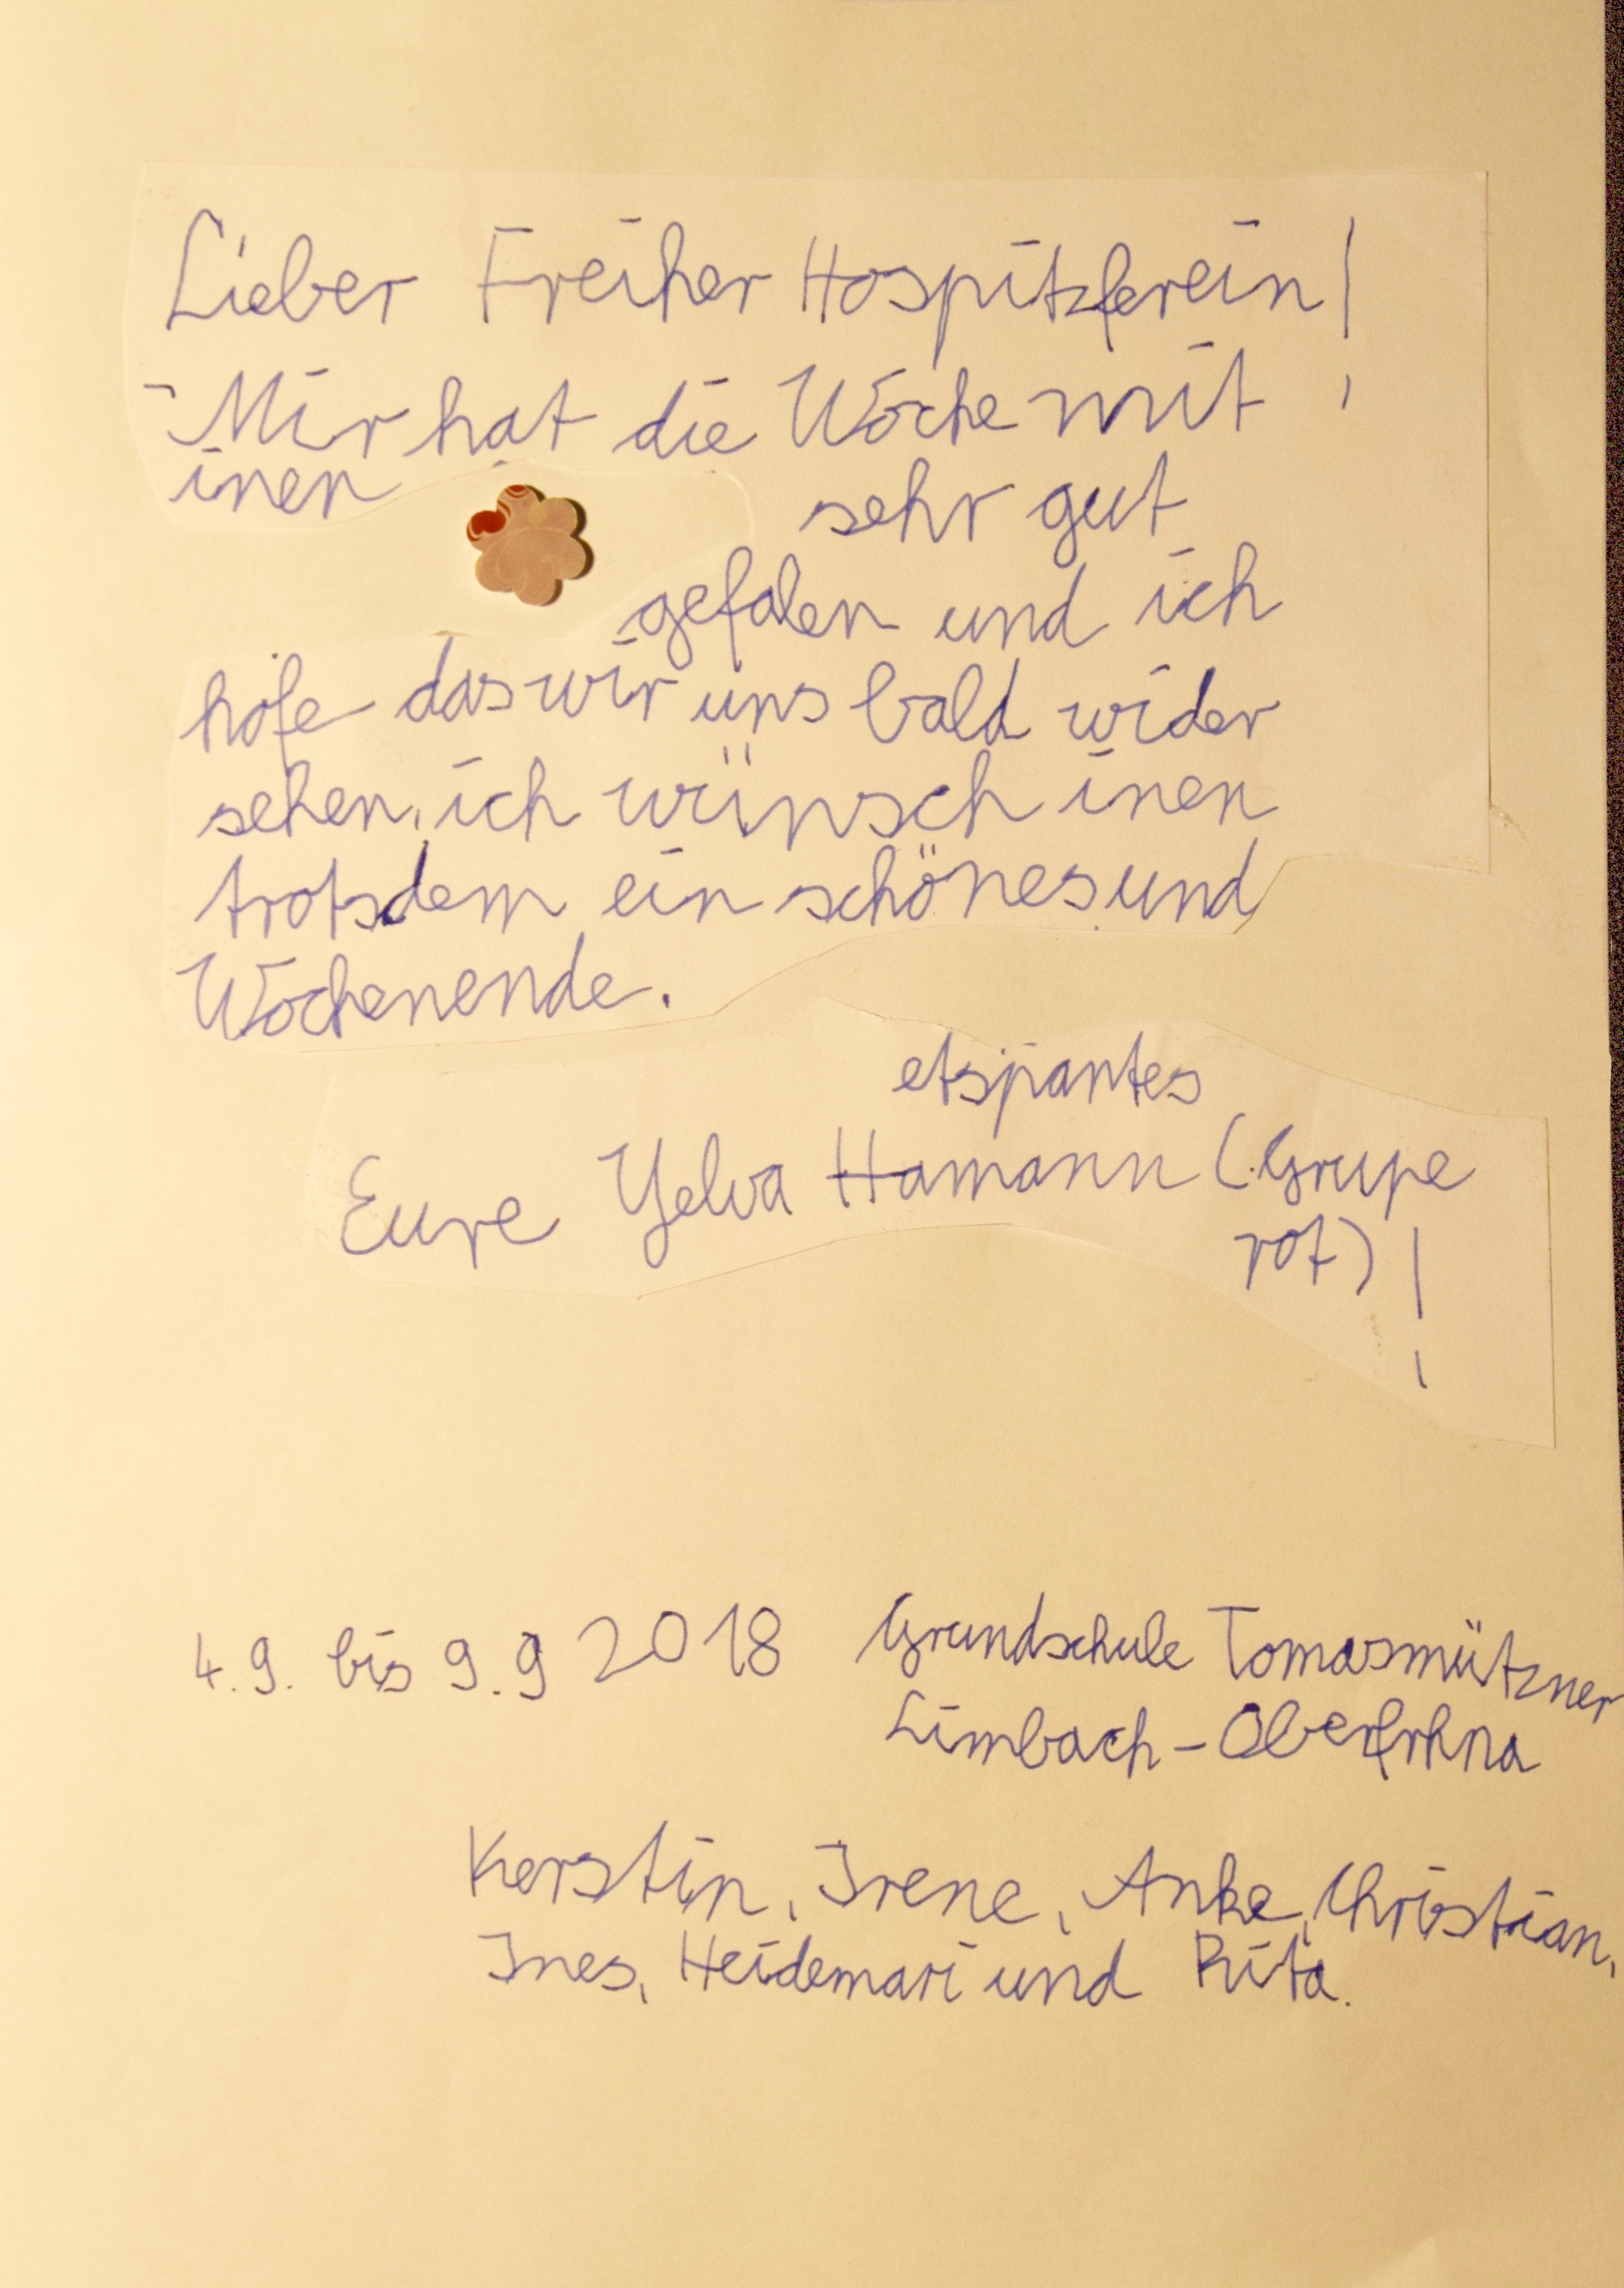 Lieber Freiher Hospitzferein!
Mir hat die Woche mit
inen sehr gut
gefalen und ich
hofe das wir uns bald wider
sehen, ich wünsch inen
trotsdem ein schönes und
Wochenende.
etspantes
Eure Yelva Hamann (Grupe
rot)!
4.9. bis 9.9 2018 Grundschule Tomasmützner
Limbach-Oberfrhna
Kerstin, Irene, Anke, Christian,
Ines, Heidemari und Rita.